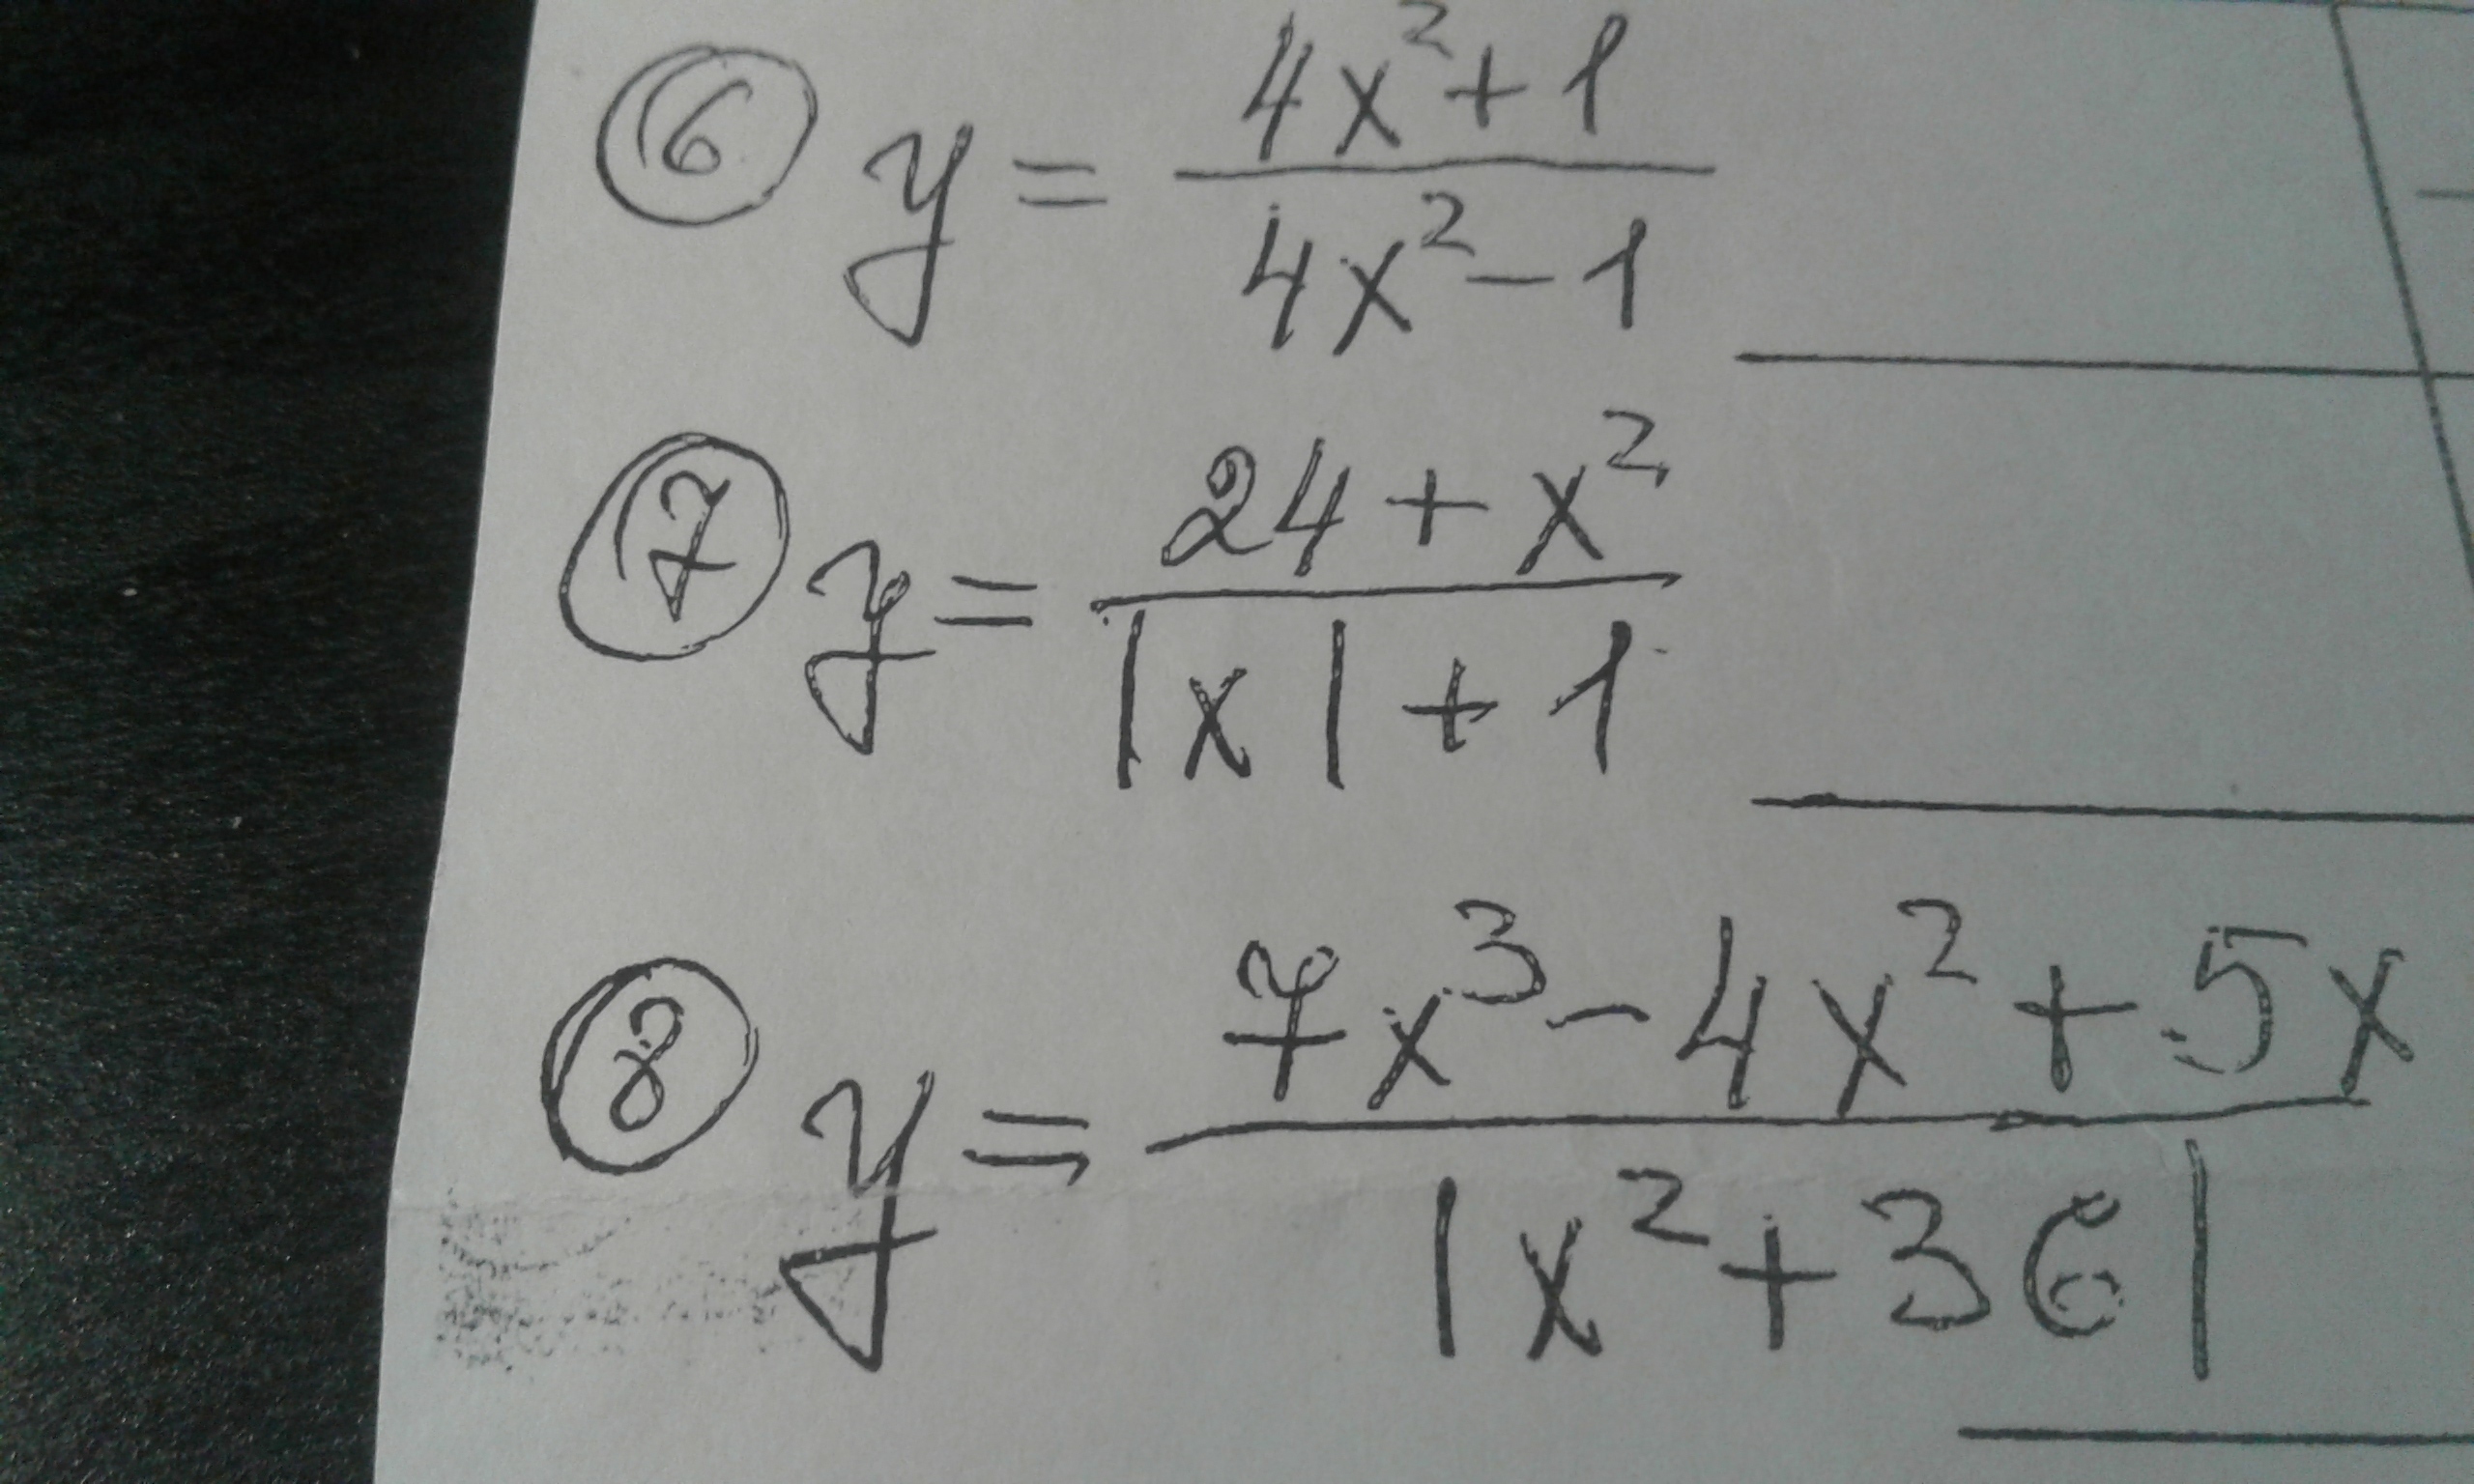 6 y = (4x² + 1) / (4x² - 1)
7 y = (24 + x²) / (|x| + 1)
8 y = (7x³ - 4x² + 5x) / |x² + 36|